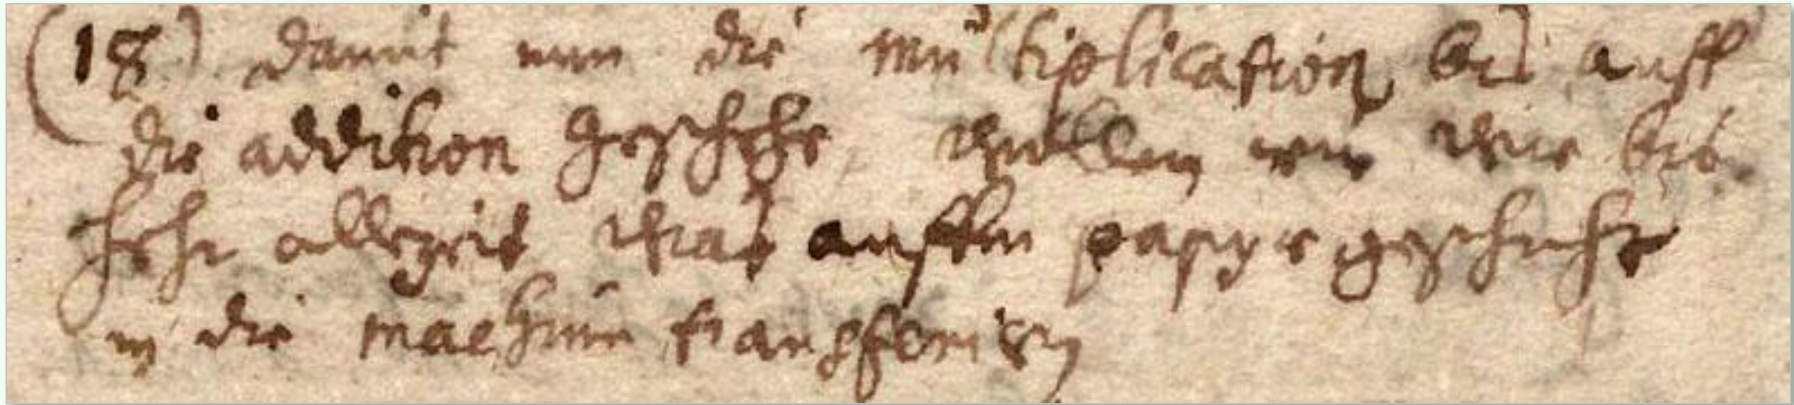 (18) damit nun die multiplication bis auff
die addition geschehe, wollen wir wie bis-
hehr allezeit was auffm papyr geschicht
in die machine transferiren